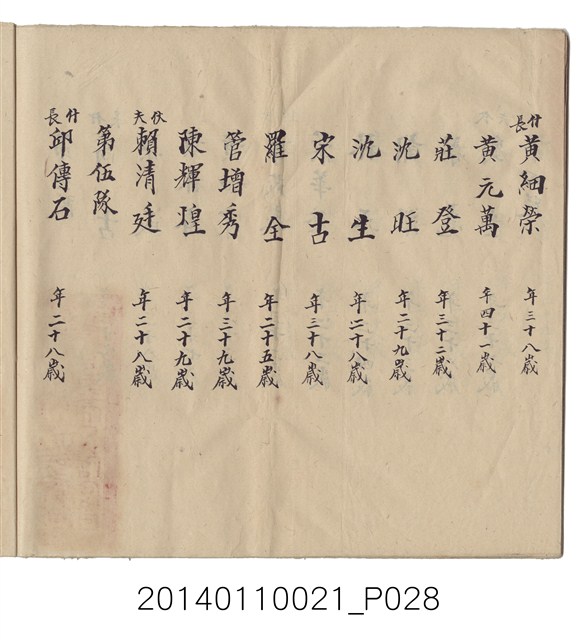 什長黃細榮 年三十八歲
黃元萬 年四十一歲
莊登 年三十二歲
沈旺 年二十九歲
沈生 年二十八歲
宋古 年三十八歲
羅全 年二十五歲
管增秀 年三十九歲
陳輝煌 年二十九歲
伙夫賴清廷 年二十八歲
第伍隊
什長邱傳石 年二十八歲
20140110021_P028